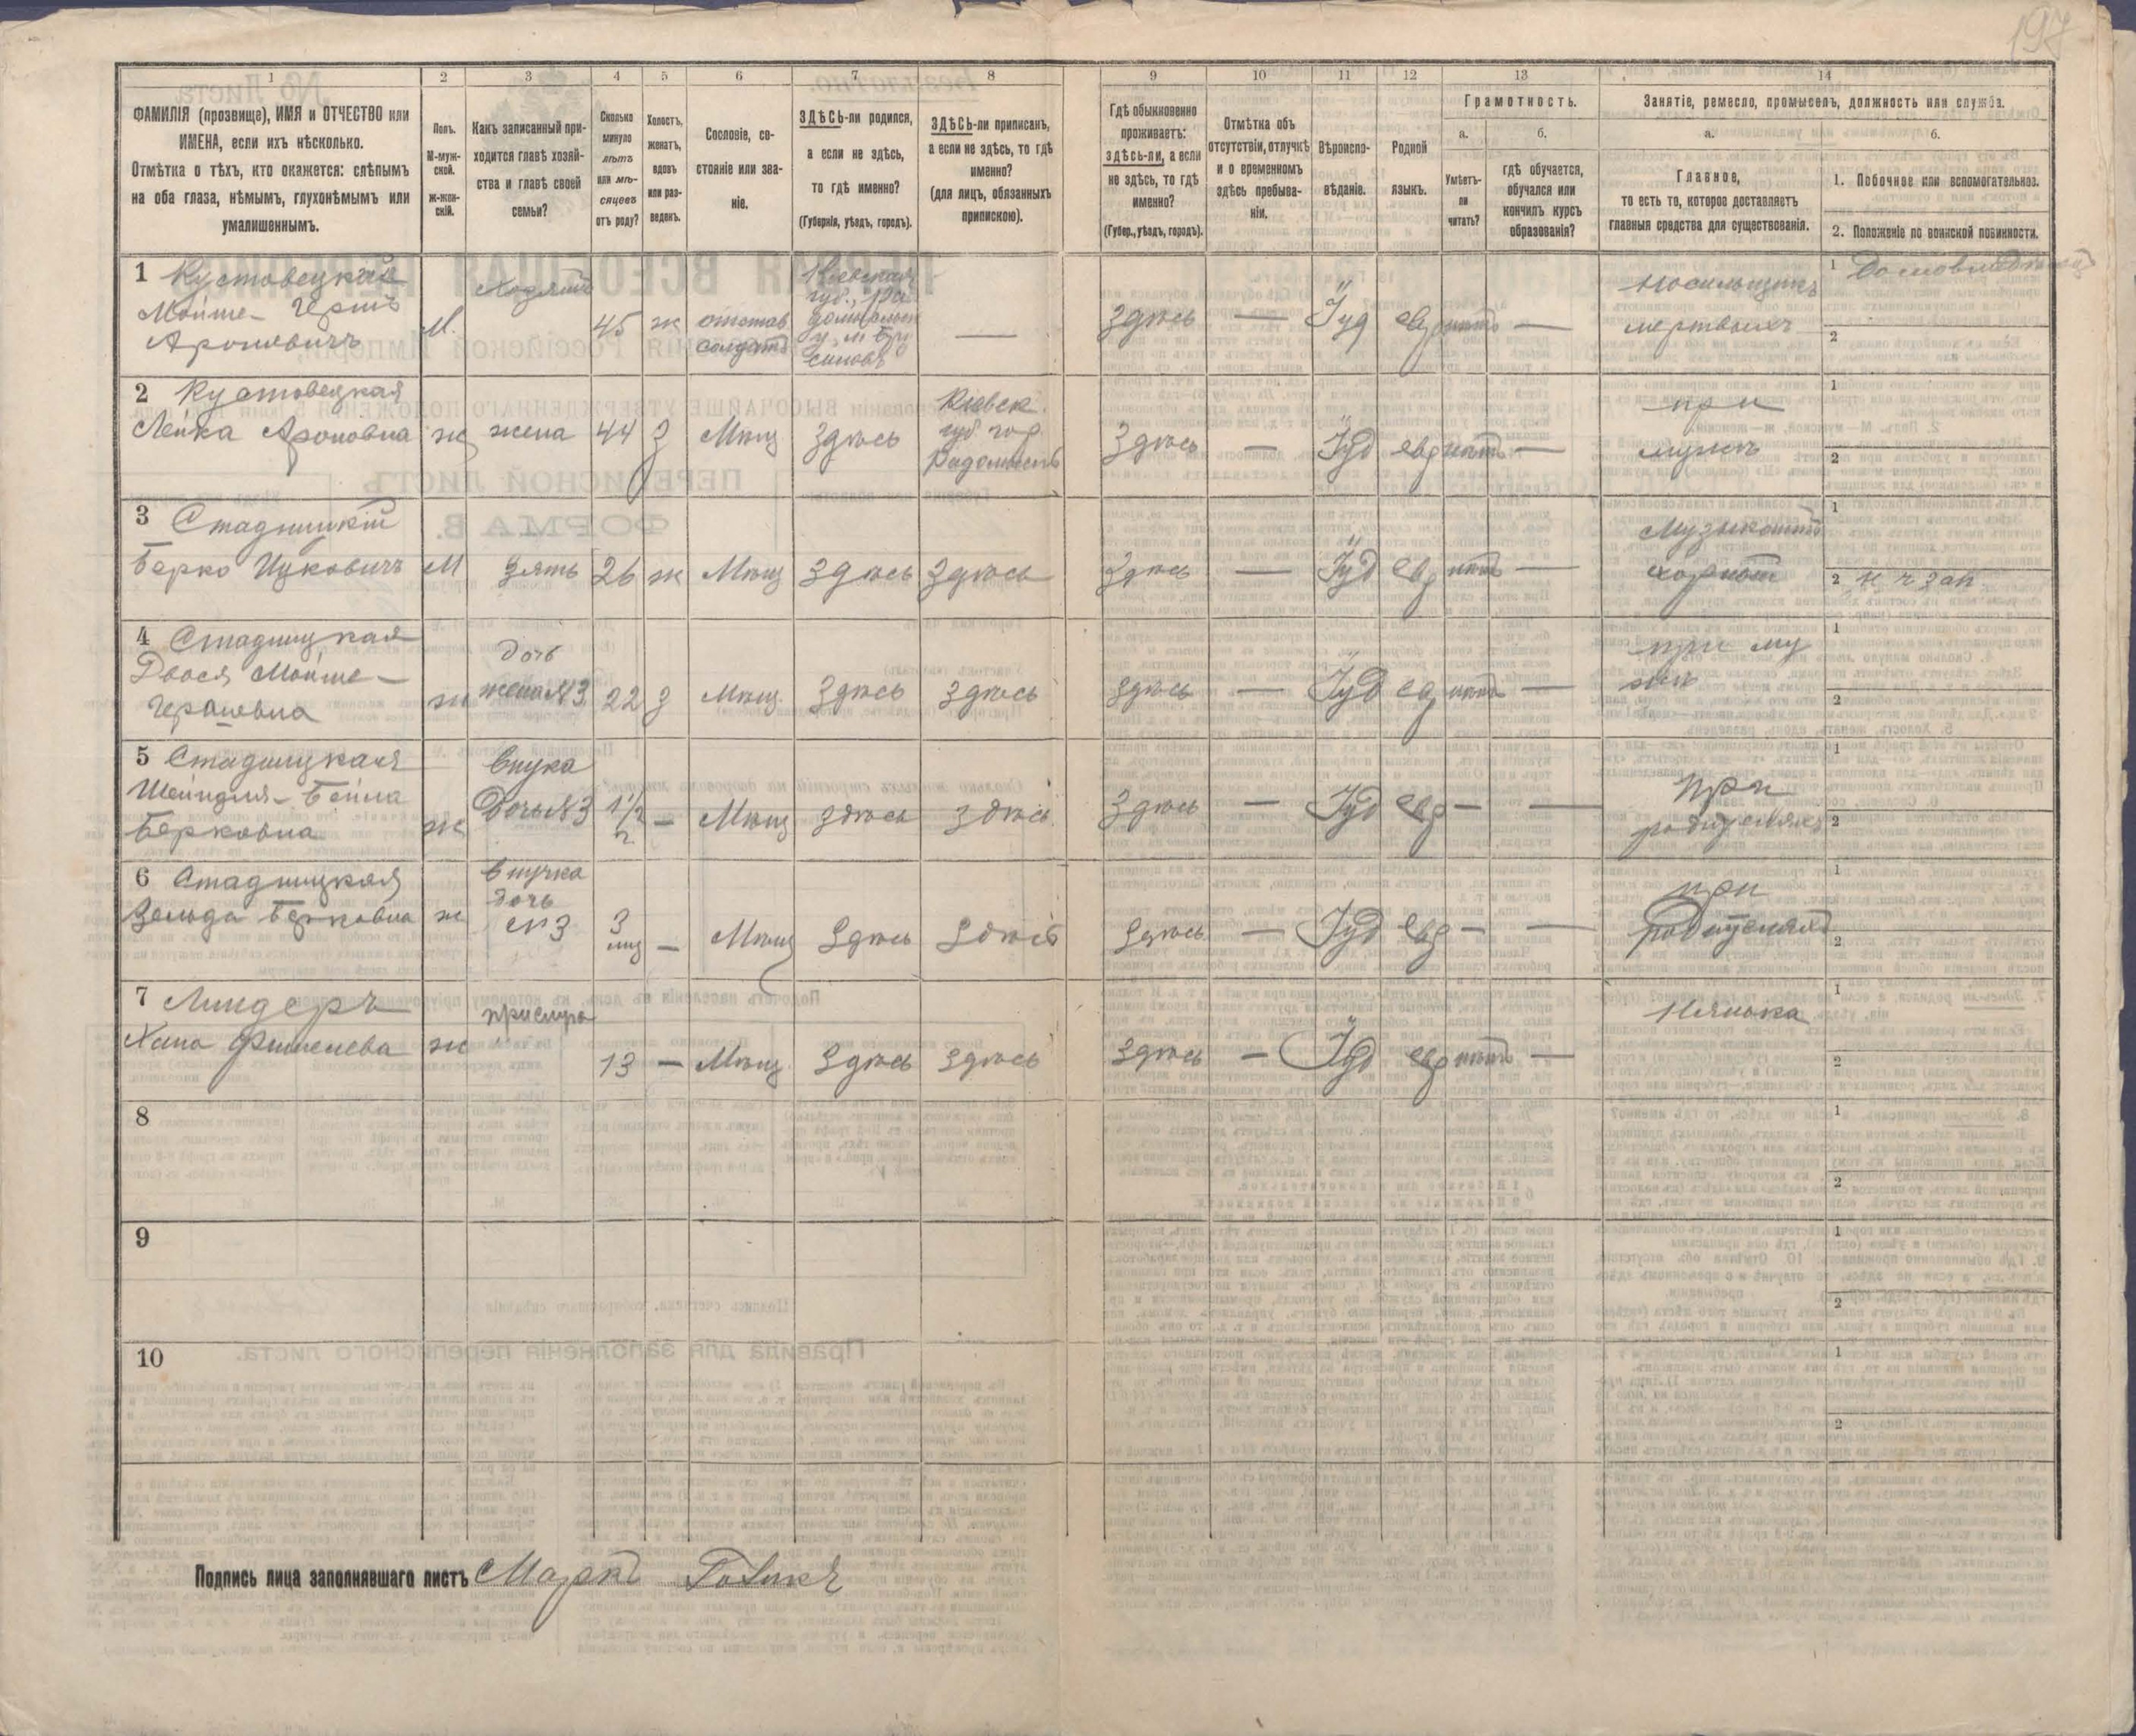 197
1
2
3
4
5
6
7
8
9
10
11
12
13
14
ФАМИЛІЯ (прозвище), ИМЯ и ОТЧЕСТВО или
ИМЕНА, если ихъ нѣсколько.
Отмѣтка о тѣхъ, кто окажется: слѣпымъ
на оба глаза, нѣмымъ, глухонѣмымъ или
умалишеннымъ.
Полъ.
М-муж-
ской.
ж-жен-
скій.
Какъ записанный при-
ходится главѣ хозяй-
ства и главѣ своей
семьи?
Сколько
минуло
лѣтъ
или мѣ-
сяцевъ
отъ роду?
Холостъ,
женатъ,
вдовъ
или раз-
веденъ.
Сословіе, со-
стояніе или зва-
ніе.
ЗДѢСЬ-ли родился,
а если не здѣсь,
то гдѣ именно?
(Губернія, уѣздъ, городъ).
ЗДѢСЬ-ли приписанъ,
а если не здѣсь, то гдѣ
именно?
(для лицъ, обязанныхъ
припискою).
Гдѣ обыкновенно
проживаетъ:
здѣсь-ли, а если
не здѣсь, то гдѣ
именно?
(Губер., уѣздъ, городъ).
Отмѣтка объ
отсутствіи, отлучкѣ
и о временномъ
здѣсь пребыва-
ніи.
Вѣроиспо-
вѣданіе.
Родной
языкъ.
Грамотность.
а.
Умѣетъ-
ли
читать?
б.
гдѣ обучается,
обучался или
кончилъ курсъ
образованія?
Занятіе, ремесло, промыселъ, должность или служба.
а.
Главное,
то есть то, которое доставляетъ
главныя средства для существованія.
б.
1. Побочное или вспомогательное.
2. Положеніе по воинской повинности.
1 Кустовецкий
Мойше- Герш
Ароновичъ
М.
Хозяинъ
45
ж
отстав
солдатъ
Кіевская
губ., Ра
—
здѣсь
—
Іуд
евр
—
Носильщикъ
мертвыхъ
1
2
2 Кустовецкая
Лейка Ароновна
ж
жена
44
З
Мѣщ
Здѣсь
Кіевск.
губ гор.
Радомысль
Здѣсь
—
Іуд
евр
—
при
мужѣ
1
2
3 Стадницкій
Берко Ицковичъ
М
Зять
26
ж
Мѣщ
Здѣсь
Здѣсь
Здѣсь
—
Іуд
евр
—
Музыкантъ
1
2
4 Стадницкая
Двося Мойше-
Гершевна
ж
дочь
жена №3
22
З
Мѣщ.
Здѣсь
Здѣсь
здѣсь
—
Іуд
евр
—
при му
жѣ
1
2
5 Стадницкая
Шейндля- Бейла
Берковна
ж
внука
Дочь №3
1 1/2
г.
—
Мѣщ
здѣсь
здѣсь
Здѣсь
—
Іуд
евр
—
—
При
родителяхъ
1
2
6 Стадницкая
Зельда Берковна
ж
внучка
дочь
№3
3
мц
—
Мѣщ
Здѣсь
Здѣсь
Здѣсь
—
Іуд
евр
—
—
при
родителяхъ
1
2
7 Линдеръ
Хана Фишелева
ж
прислуга
13
—
Мѣщ.
Здѣсь
здѣсь
здѣсь
—
Іуд
евр
—
Нянька
1
2
8
1
2
9
1
2
10
1
2
Подпись лица заполнявшаго листъ Маркъ